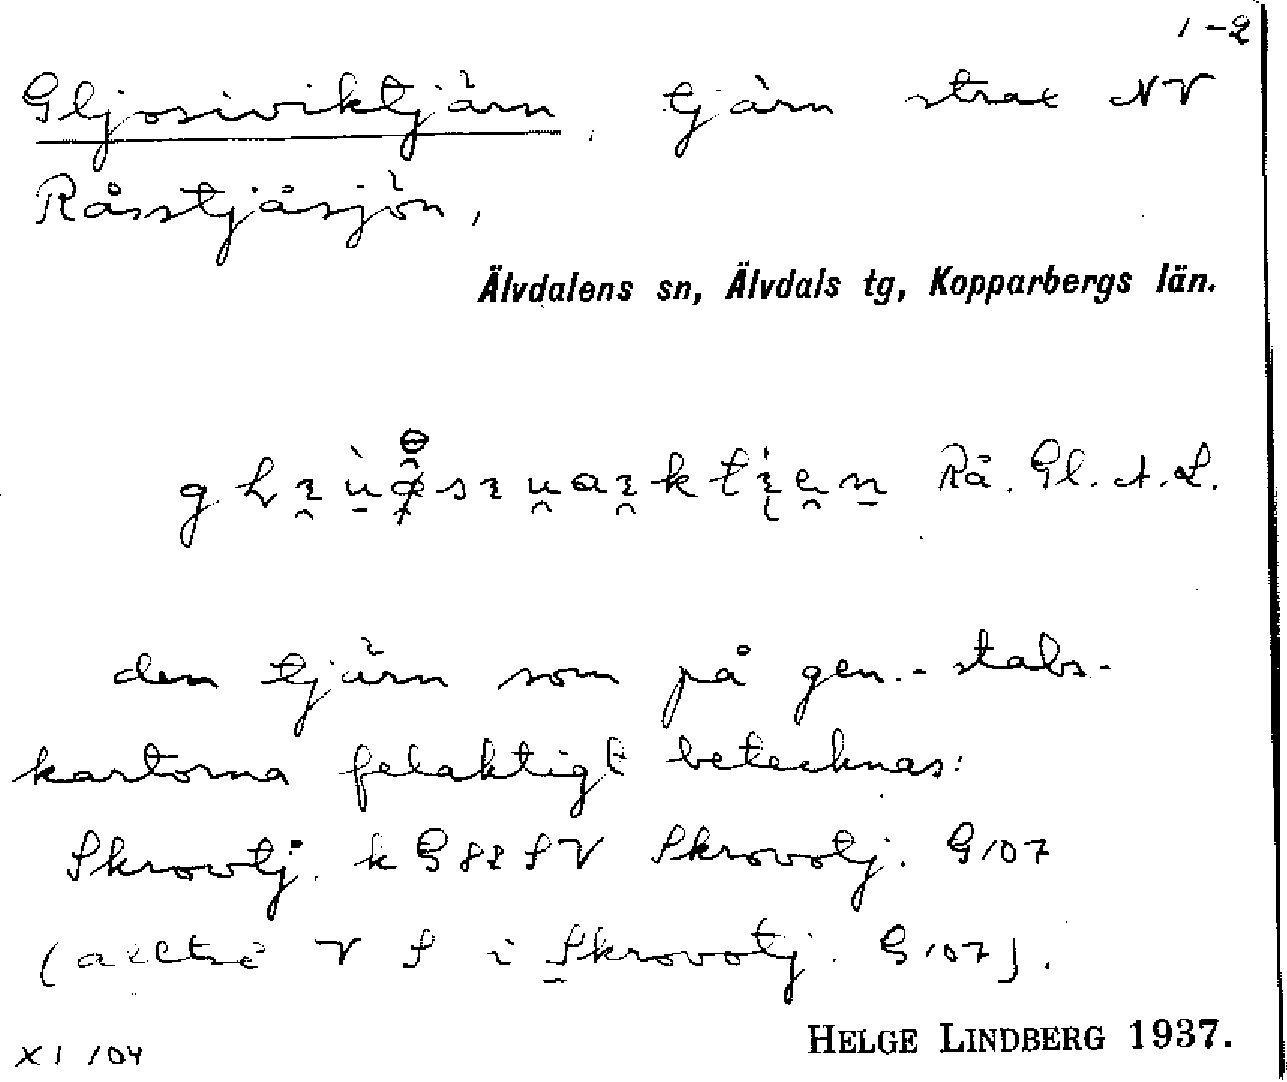 1-2
Gljosiviktjärn, tjärn strax NV
Råsstjåsjön,
Älvdalens sn, Älvdals tg, Kopparbergs län.
Rå. Gl. A. L.
den tjärn som på gen.-stabs-
kartorna felaktigt betecknas:
Skrovtj. k G 82 SV Skrovotj. G 107
V S i Skrovotj. G 107).
XI 104
HELGE LINDBERG 1937.